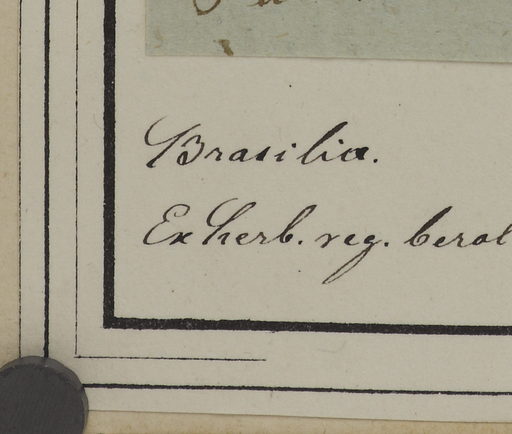 Brasilia.
Ex herb. reg. berol